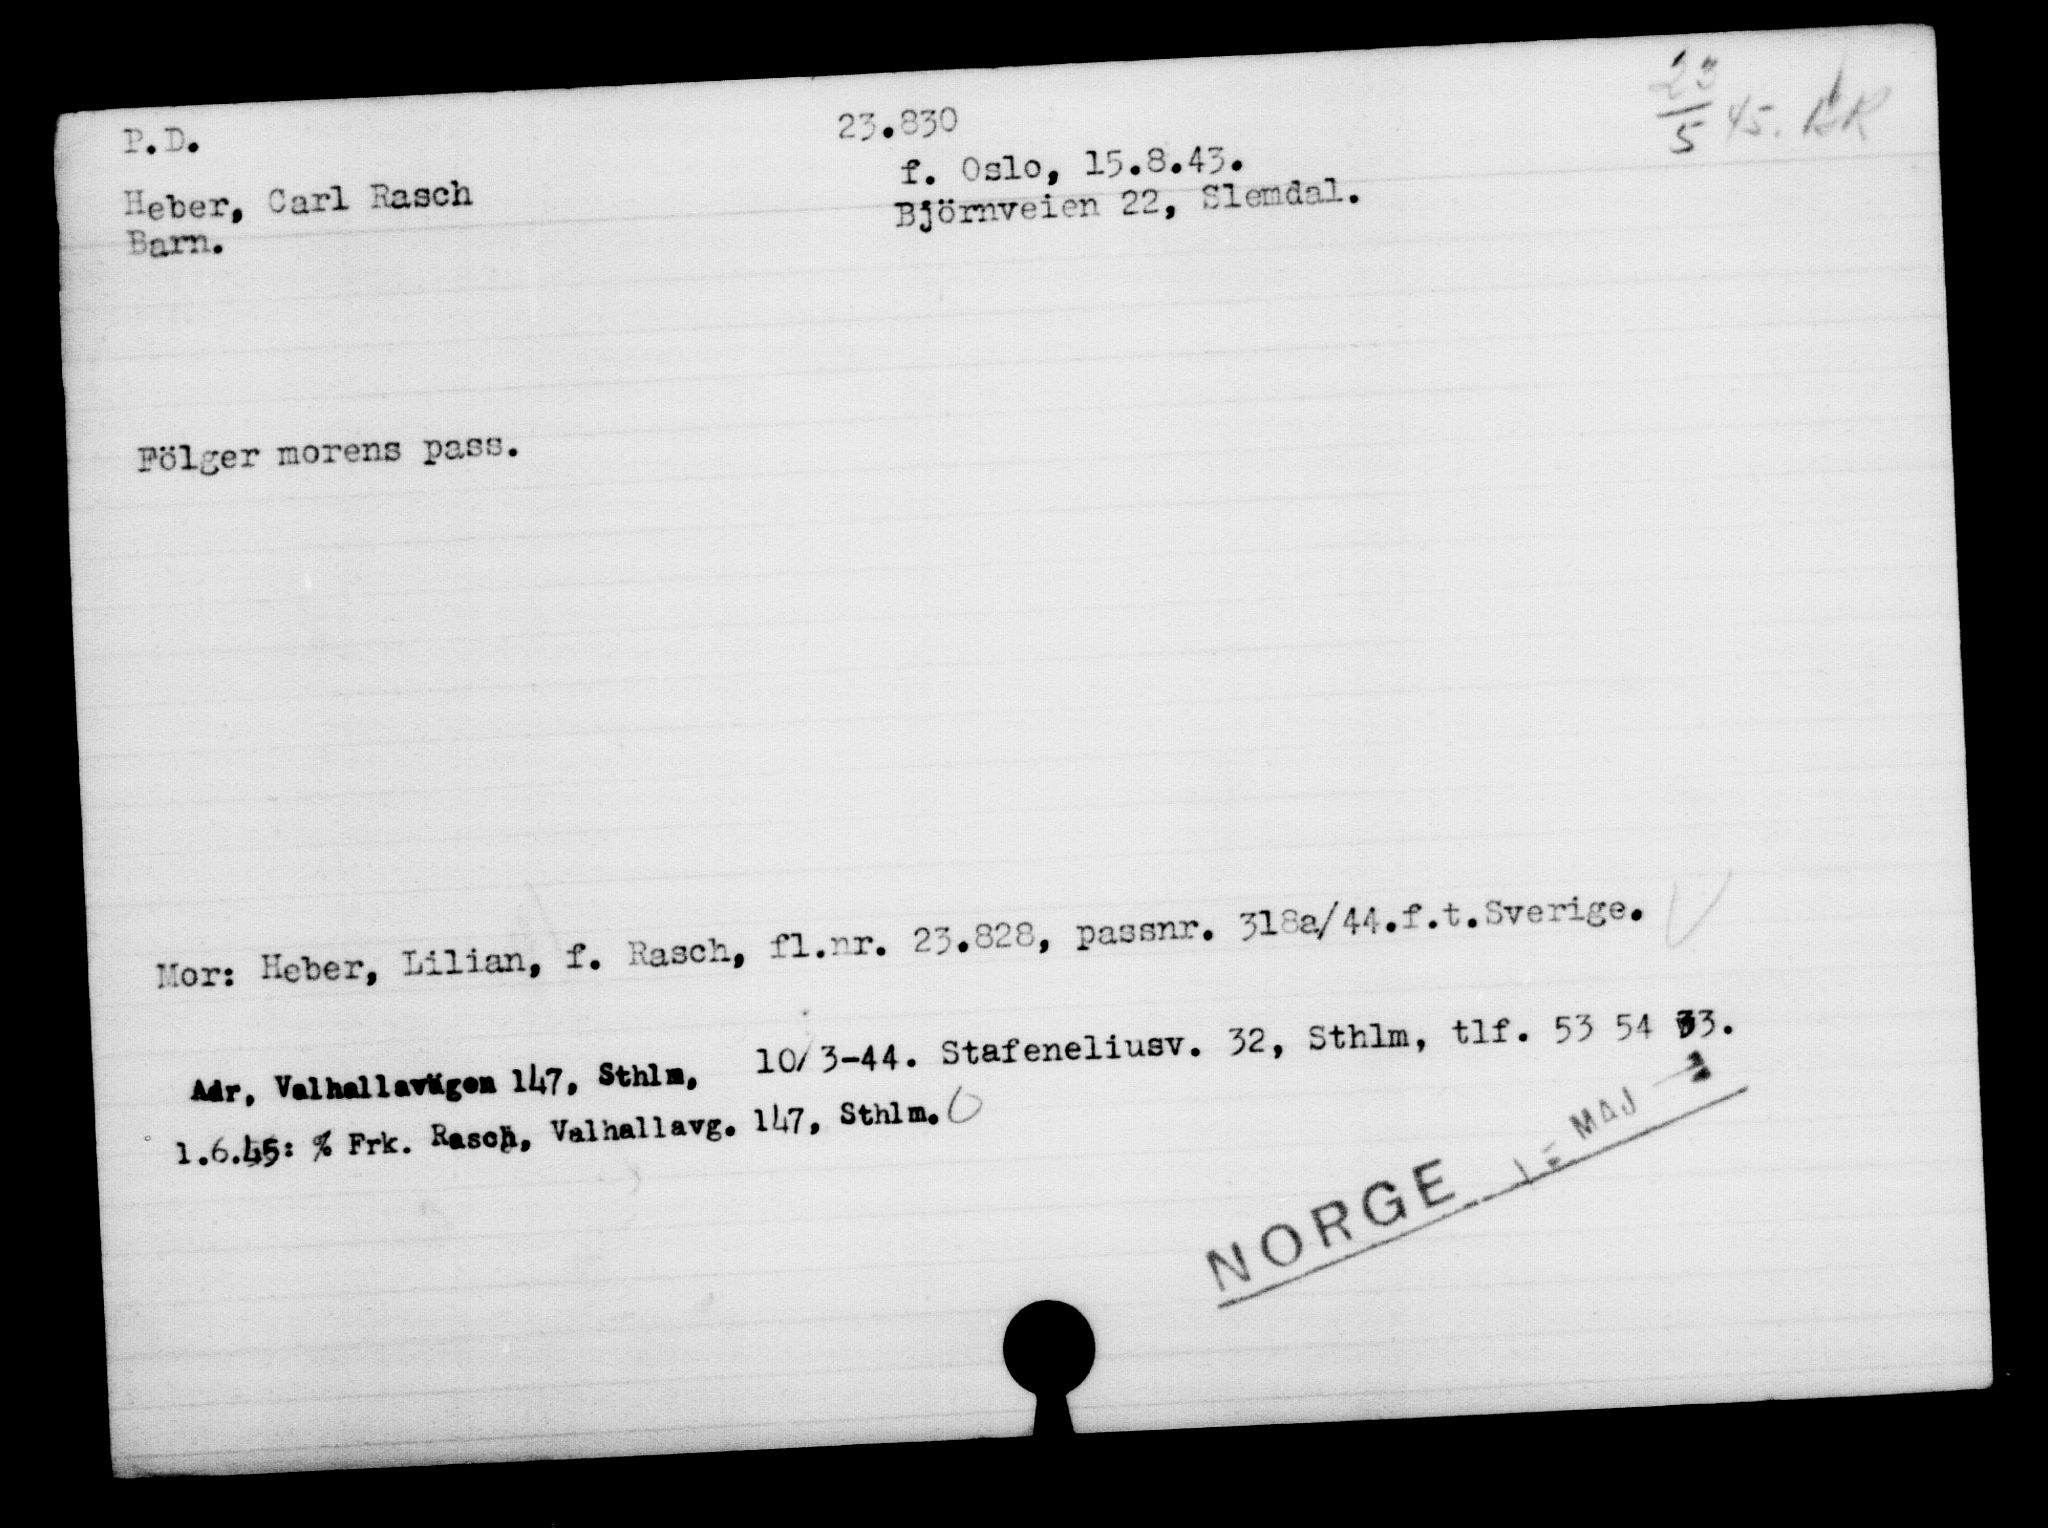 P.D.
23.830
23/5 45.
f. Oslo, 15.8.43.
Heber, Carl Rasch
Björnveien 22, Slemdal.
Barn.
Fölger morens pass.
Mor: Heber, Lilian, f. Rasch, fl.nr. 23.828, passnr. 318a/44.f.t.Sverige.
10/3-44. Stafeneliusv. 32, Sthlm, tlf. 53 54 33.
Adr. Valhallavägen 147, Sthlm,
1.6.45: % Frk. Rasch, Valhallavg. 147, Sthlm.
NORGE MAJ